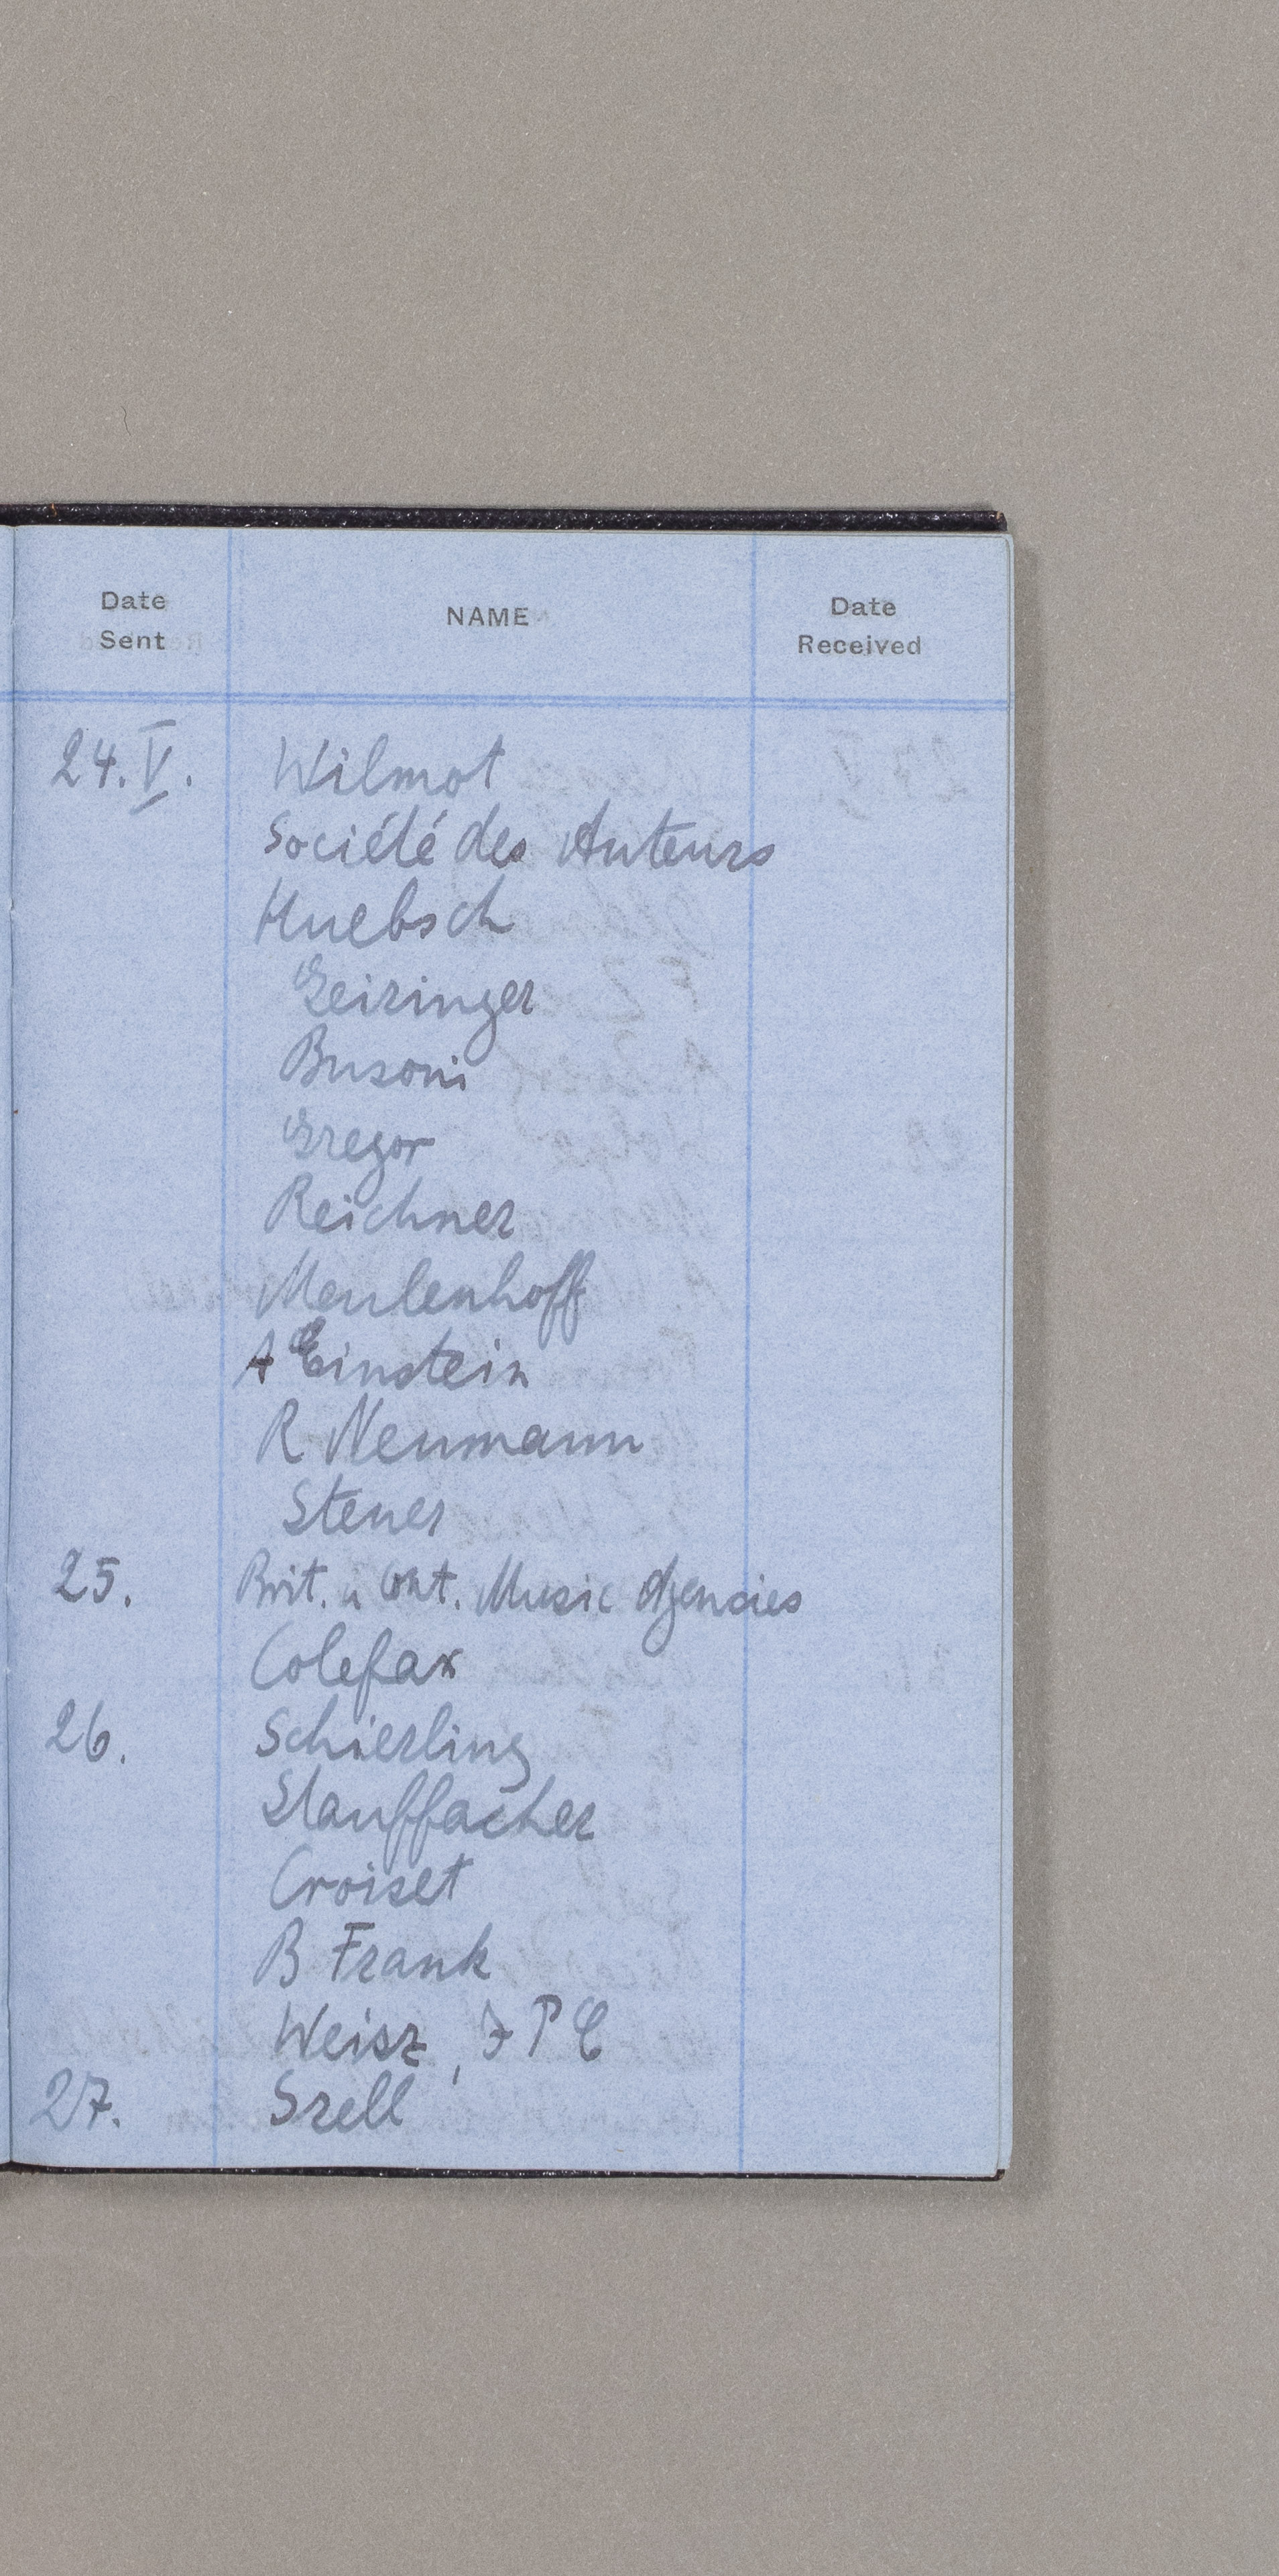 Date Sent NAME Date Received
24.V. Wilmot
Société des Auteurs
Huebsch
Geiringer
Busoni
Gregor
Reichner
Meulenhoff
A Einstein
R Neumann
Stener
25. Brit. u Cont. Music Agencies
Colefax
26. Schierling
Stauffacher
Croiset
B Frank
Weisz, J P C
27. Szell